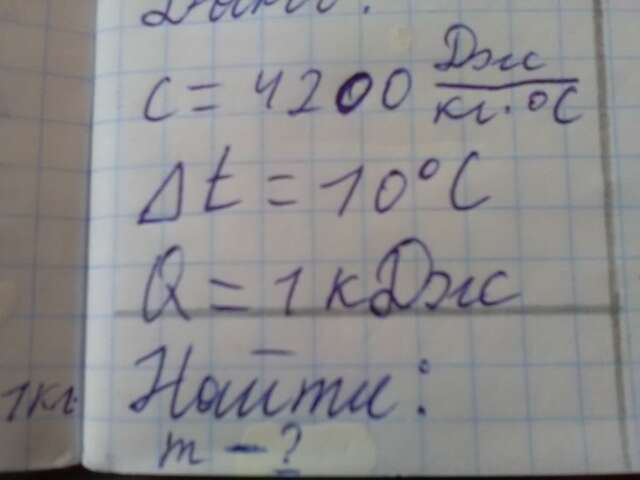 Дано:
c = 4200 Дж/кг·°C
Δt = 10°C
Q = 1 кДж
Найти:
1кг
m - ?